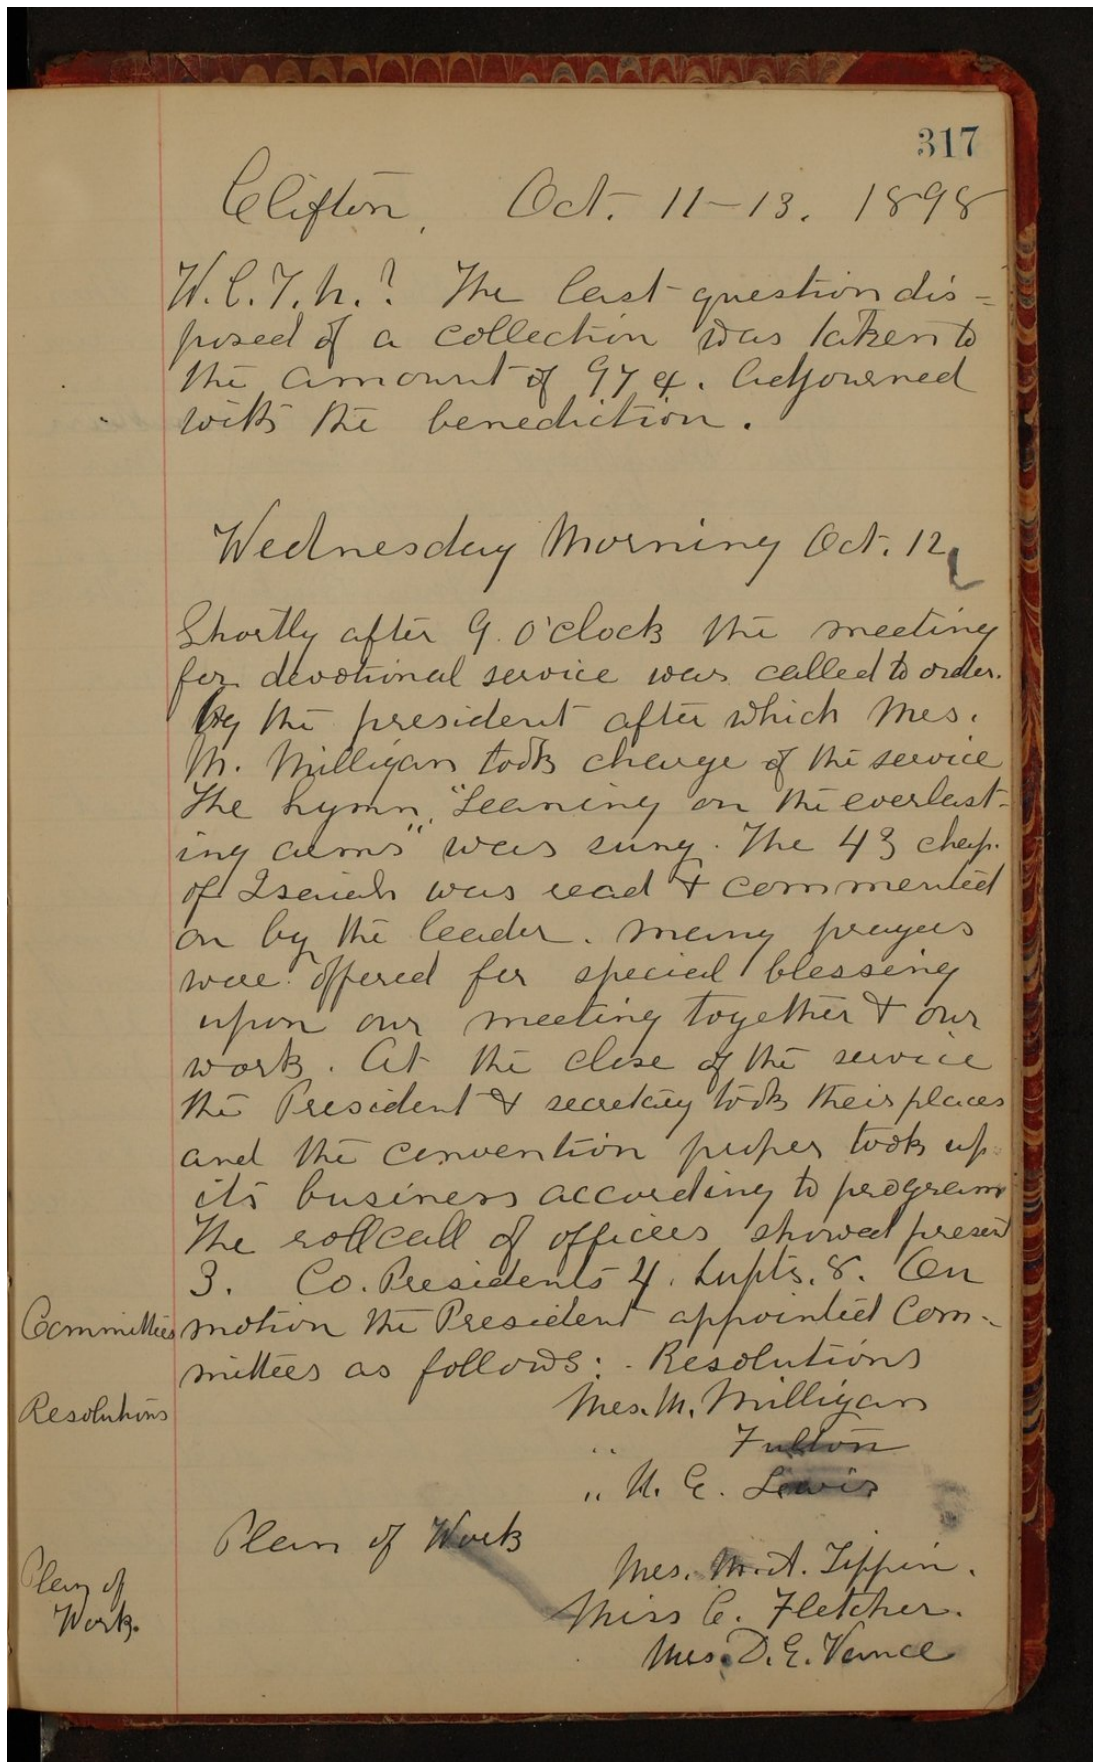 317
Clifton, Oct. 11-13. 1898
W.C.T.U.? The last question dis-
posed of a collection was taken to
the amount of 97¢. Adjourned
with the benediction.
Wednesday Morning Oct. 12
Shortly after 9. o'clock the meeting
for devotional service was called to order.
by the president after which Mrs.
M. Milligan took charge of the service
The hymn, "Leaning on the everlast-
ing arms" was sung. The 43 chap.
of Isaiah was read & commented
on by the leader. Many prayers
were offered for special blessing
upon our meeting together & our
work. At the close of the service
the President & secretary took their places
and the convention proper took up
its business according to program
The rollcall of officers showed present
3. Co. Presidents 4. Supts. 8. On
Committees motion the President appointed Com-
mittees as follows: - Resolutions
Resolutions Mrs. M. Milligan
" Fulton
" N. E. Lewis
Plan of Work
Mrs. M. A. Tippin.
Plan of
Miss C. Fletcher.
Work.
Mrs. D. E. Vance